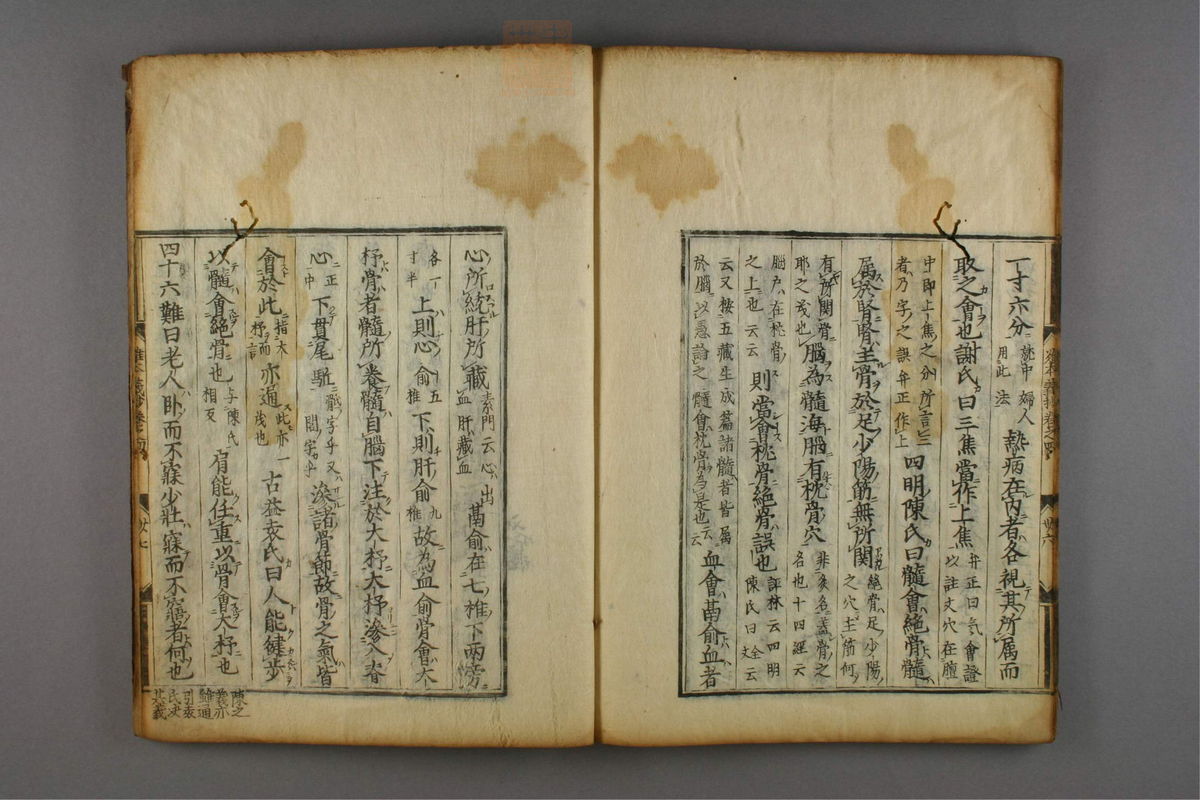 一寸六分 薿中婦人用此法 熱病在内者各視其所属而
取之會也謝氏曰三焦當作上焦 弁正曰気會證以註文穴在膻
中即上焦之分所言三者乃字之誤弁正作上 四明陳氏曰髓會絶骨髓
属於腎腎主骨於足少陽筋無所関 絶骨足少陽之穴主筋何
有所関骨 脳為髓海脳有枕骨穴 非灸名盖骨之名也十四經云
脳户在枕骨之上也云云 則當會枕骨絶骨誤也 評林云四明陳氏曰全文云
云又按五藏生成篇諸髓者皆属於脳以愚論之髓會枕骨為是也云云 血會鬲俞血者
心所統肝所藏 素問云心出血肝藏血 鬲俞在七椎下兩傍
各一寸半 上則心俞 五椎 下則肝俞 九椎 故為血俞骨會大
杼骨者髓所養髓自脳下注於大杼大杼滲入脊
心 正中 下貫尾骶 骶字乎又閭字乎 滲諸骨節故骨之氣皆
會於此 指大杼而言 亦通 此亦一茂也 古益袁氏曰人能健步
以髓會絶骨也 与陳氏相反 肩能任重以骨會大杼也
四十六難曰老人卧而不寐少壮寐而不寤者何也
陳之
義亦
雖通
引袁
氏决
其義